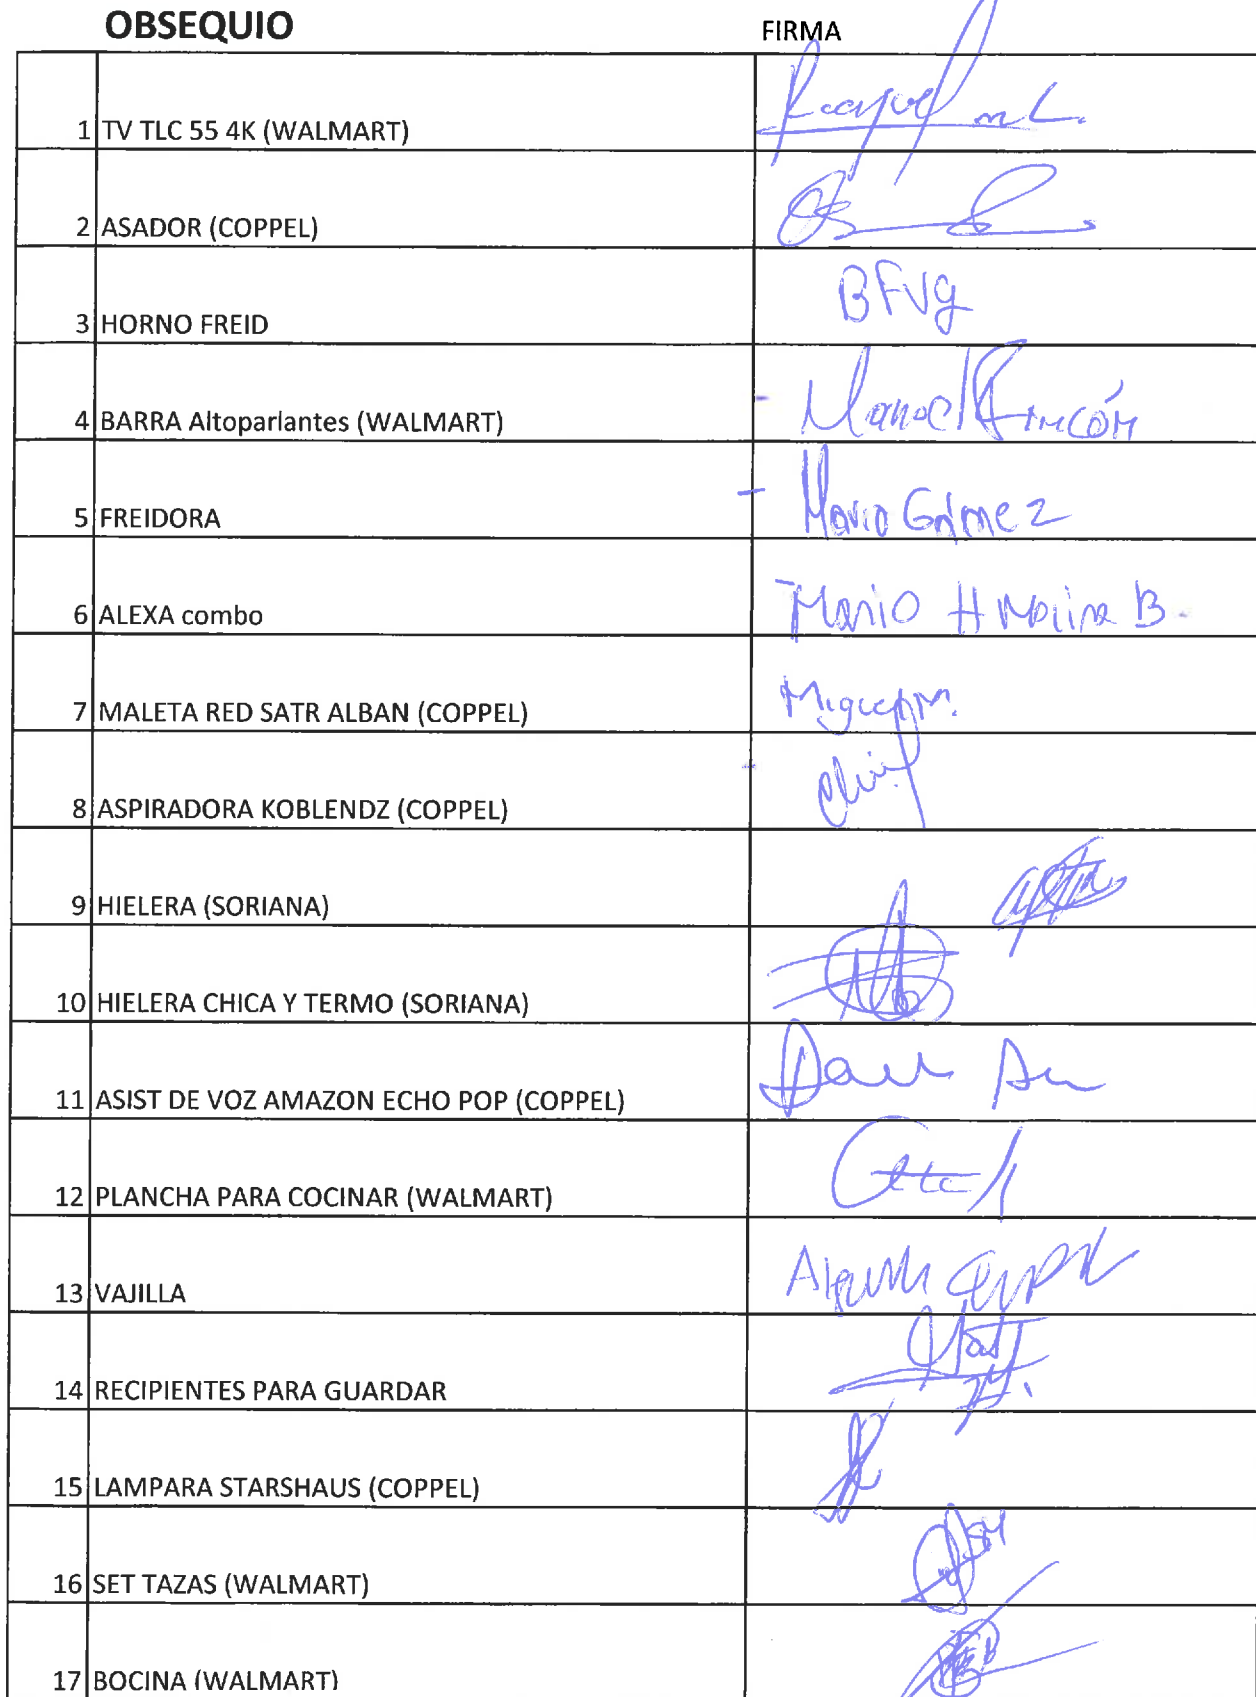 OBSEQUIO FIRMA
1 TV TLC 55 4K (WALMART)
2 ASADOR (COPPEL)
3 HORNO FREID BFVg
4 BARRA Altoparlantes (WALMART) Manoel Rincón
5 FREIDORA Mario Gámez
6 ALEXA combo Mario H Molina B.
7 MALETA RED SATR ALBAN (COPPEL) Miguel M.
8 ASPIRADORA KOBLENDZ (COPPEL)
9 HIELERA (SORIANA)
10 HIELERA CHICA Y TERMO (SORIANA)
11 ASIST DE VOZ AMAZON ECHO POP (COPPEL)
12 PLANCHA PARA COCINAR (WALMART)
13 VAJILLA
14 RECIPIENTES PARA GUARDAR
15 LAMPARA STARSHAUS (COPPEL)
16 SET TAZAS (WALMART)
17 BOCINA (WALMART)